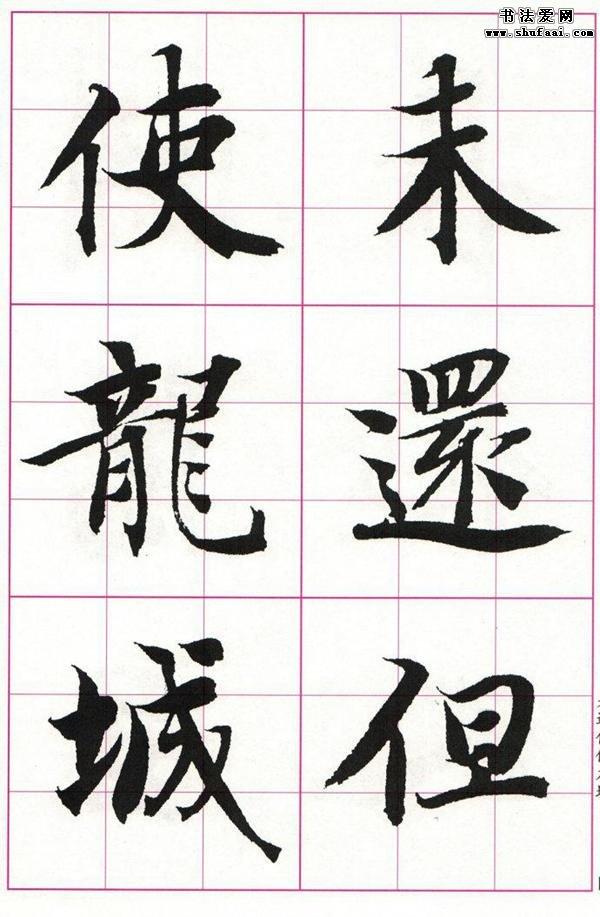 书法爱网
www.shufaai.com
未還但
使龍城